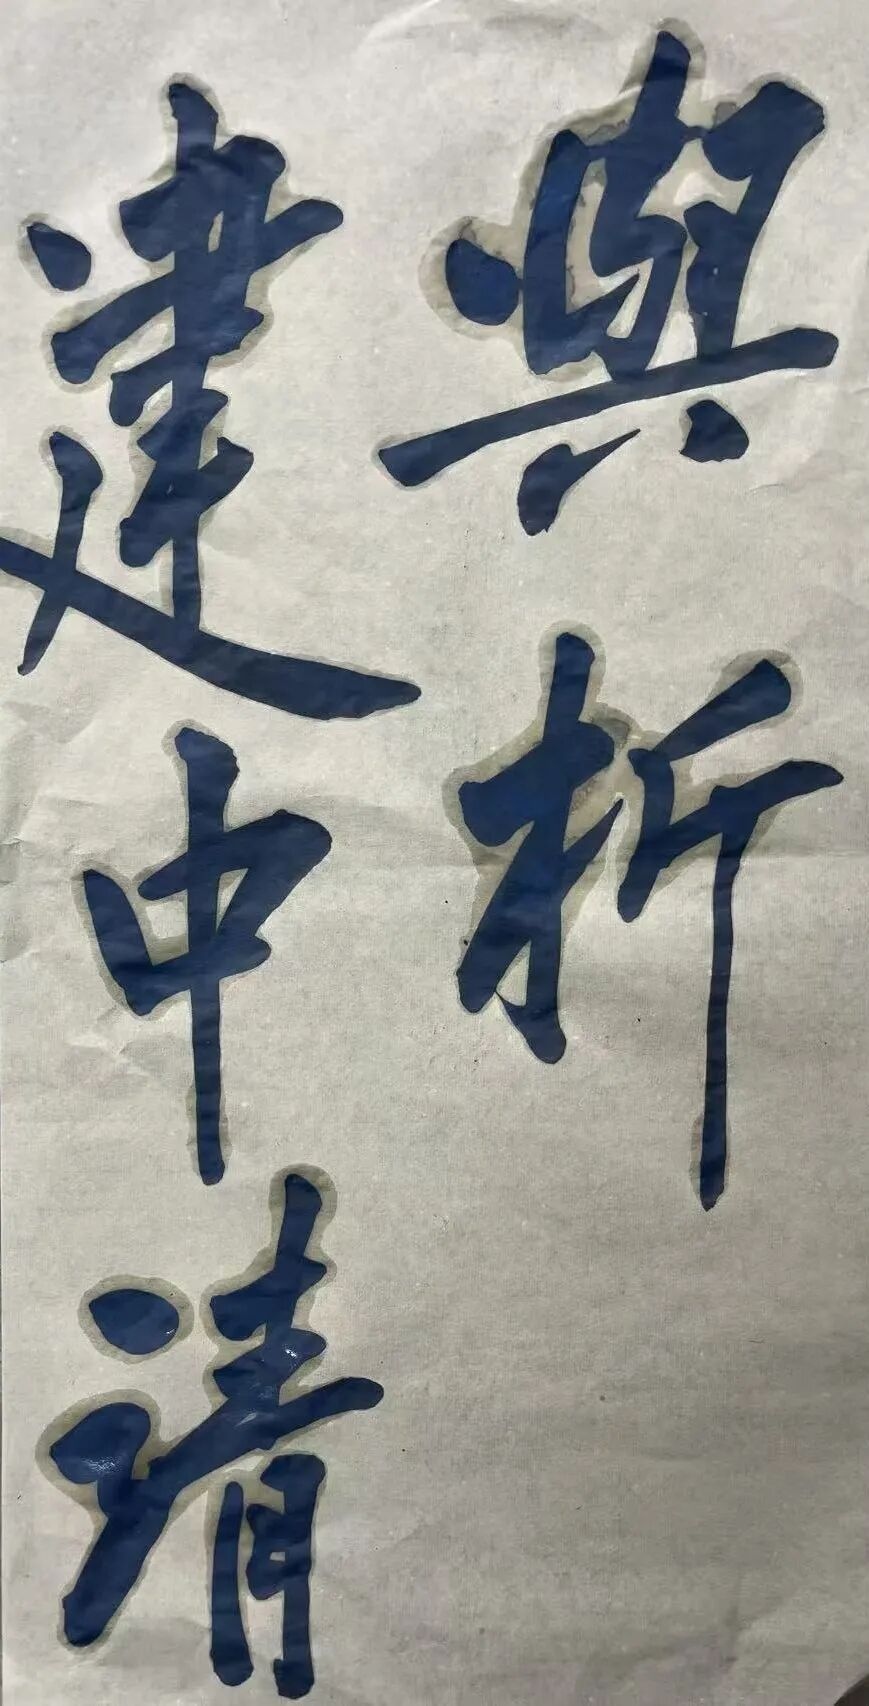 與折
建中清